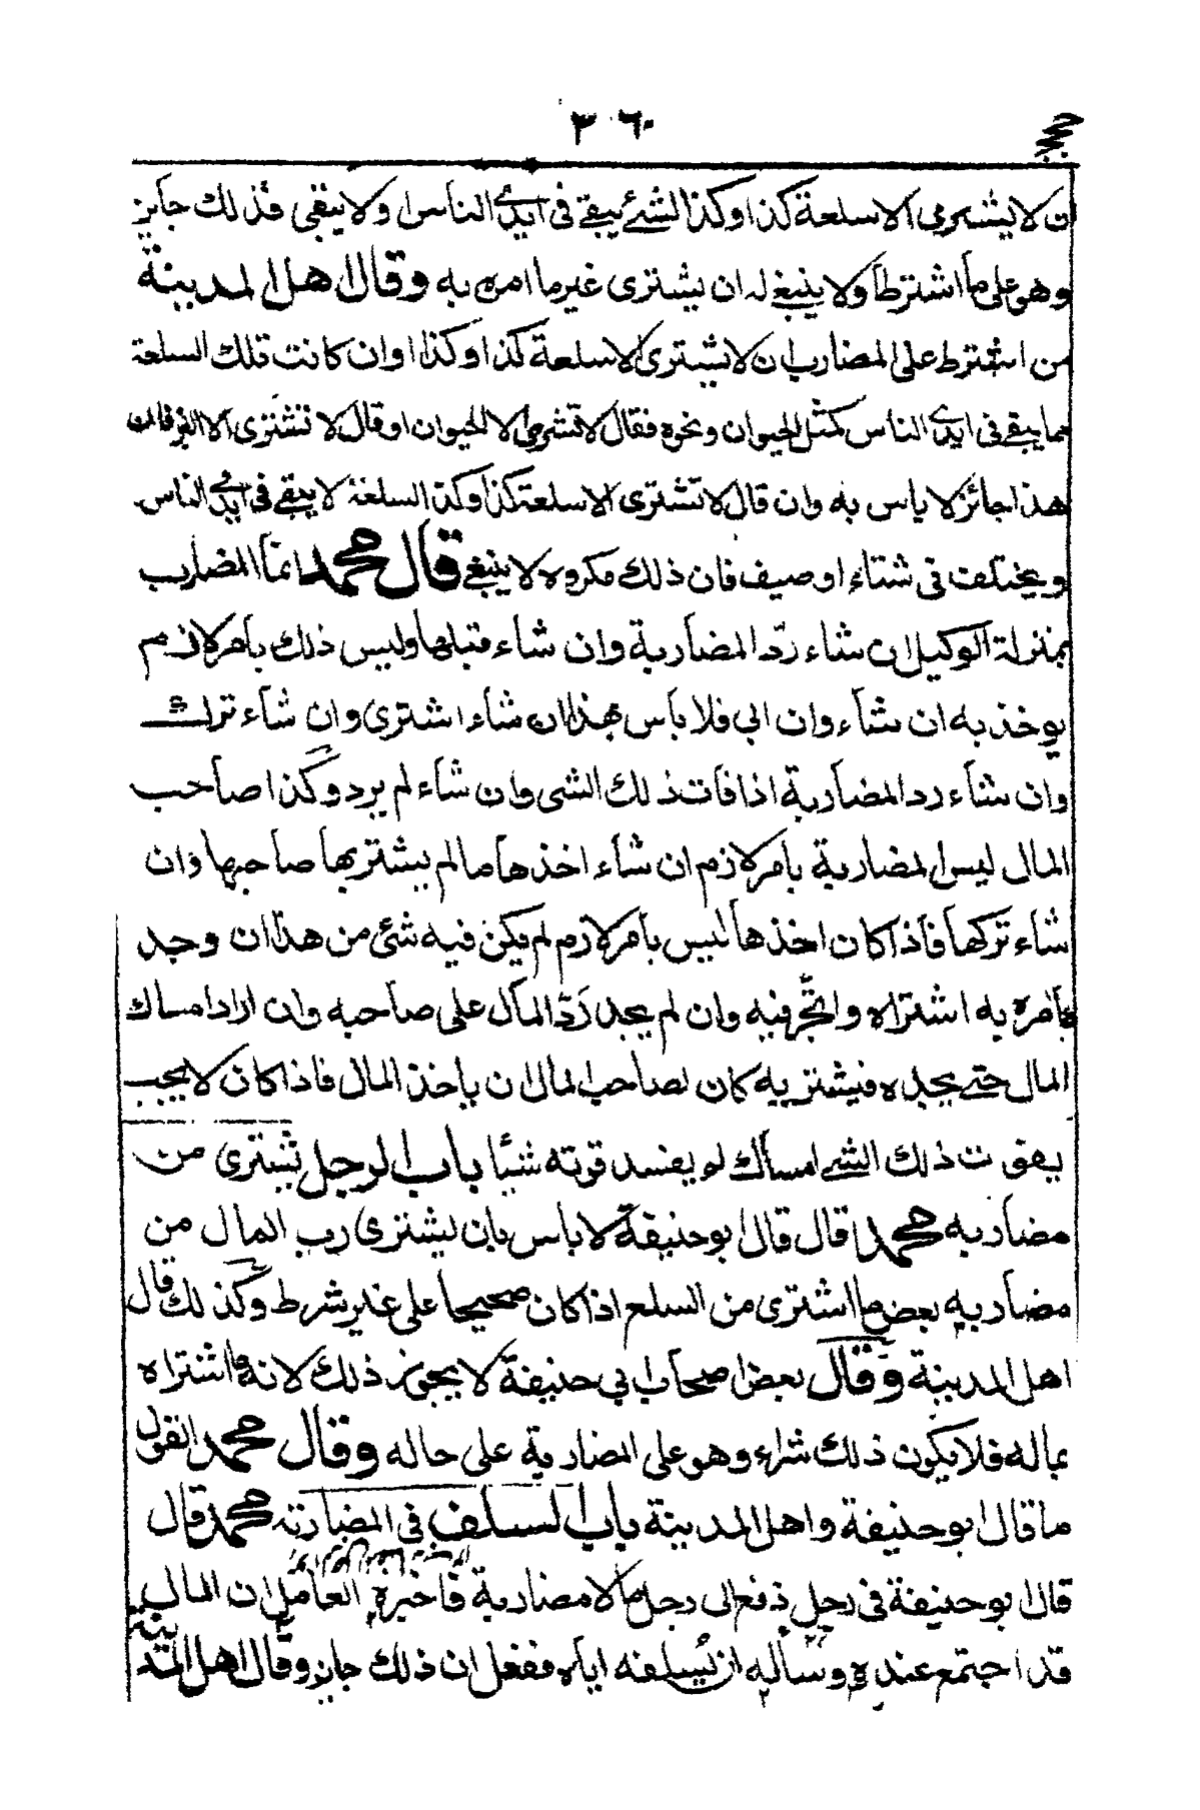 ٣٦٠
ن لا يشترى الا سلعة كذا وكذا الشئ يبقى فى ايدى الناس ولا ينقى فذلك جايز
وهو على ما اشترطا ولا ينبغى له ان يشترى غير ما امره به وقال اهل المدينة
من اشترط على المضارب ان لا يشترى الا سلعة كذا وكذا وان كانت تلك السلعة
مما يبقى فى ايدى الناس كمثل الحيوان ونحوه فقال لا تشترى الا الحيوان او قال لا تشترى الا فان
هذا جائز لا باس به وان قال لا تشترى الا سلعة كذا وكذا السلعة لا يبقى فى ايدى الناس
ويختلف فى شتاء او صيف فان ذلك مكروه لا ينبغى قال محمد انما المضارب
بمنزلة الوكيل ان شاء ردّ المضاربة وان شاء قبلها وليس ذلك بامر لازم
يوخذ به ان شاء وان ابى فلا باس بهذا ان شاء اشترى وان شاء ترك
وان شاء رد المضاربة اذا فات ذلك الشى وان شاء لم يرد وكذا صاحب
المال ليس المضاربة بامر لازم ان شاء اخذها ما لم يشتر بها صاحبها وان
شاء تركها فاذا كان اخذها ليس بامر لازم لم يكن فيه شئ من هذا ان وجد
ما امره به اشتراه واتّجر فيه وان لم يجد رَدّ المال على صاحبه وان اراد امساك
المال حتى يجده فيشتريه كان لصاحب المال ان ياخذ المال فاذا كان لا يجب
يفوت ذلك الشى امساك لو يفسد قوته شيئا باب الرجل يشترى من
مضاربه محمد قال قال ابو حنيفة لا باس بان يشترى رب المال من
مضاربه بعض ما اشترى من السلع اذا كان صحيحا على غير شرط وكذلك قال
اهل المدينة وقال بعض اصحاب ابي حنيفة لا يجوز ذلك لانه ما اشتراه
بماله فلا يكون ذلك شراء وهو على المضاربة على حاله وقال محمد القول
ما قال ابو حنيفة واهل المدينة باب السلف فى المضاربة محمد قال
قال ابو حنيفة فى رجل دفع الى رجل مالا مضاربة فاخبره العامل ان المال
قد اجتمع عنده وساله ان يُسلفه اياه ففعل ان ذلك جايز وقال اهل المدينة